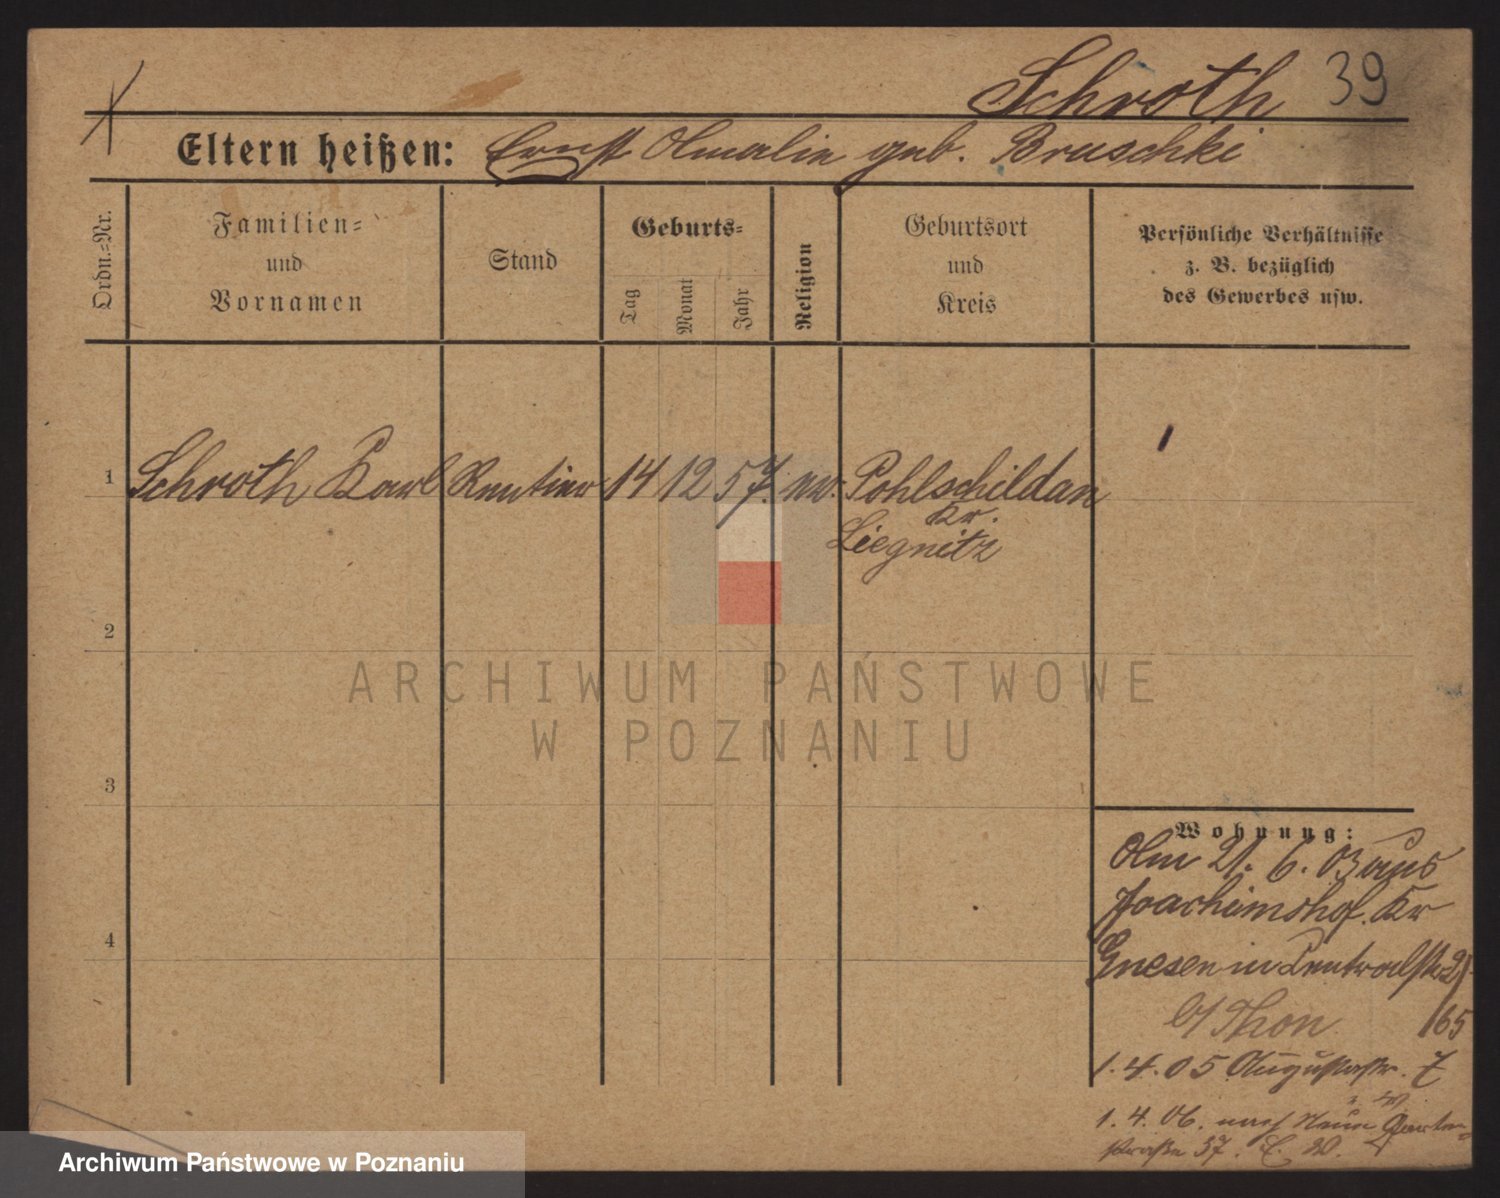 Schroth 39
Eltern heißen: Ernst Amalie geb. Bruschki
Ordn.=Nr.
Familien=
und
Vornamen
Stand
Geburts=
Tag
Monat
Jahr
Religion
Geburtsort
und
Kreis
Persönliche Verhältnisse
z. B. bezüglich
des Gewerbes usw.
1 Schroth Karl Rentier 14 12 57. ev. Pohlschildan
Kr.
Liegnitz
2
3
4
Wohnung:
Am 21. 6. 03 aus
Joachimshof. Kr
Gnesen in Centralstr 2
b/ Thon 165
1. 4. 05 Augustastr. 7
1. 4. 06. nach Neue Garten-
straße 37. C. W.
ARCHIWUM PAŃSTWOWE
W POZNANIU
Archiwum Państwowe w Poznaniu